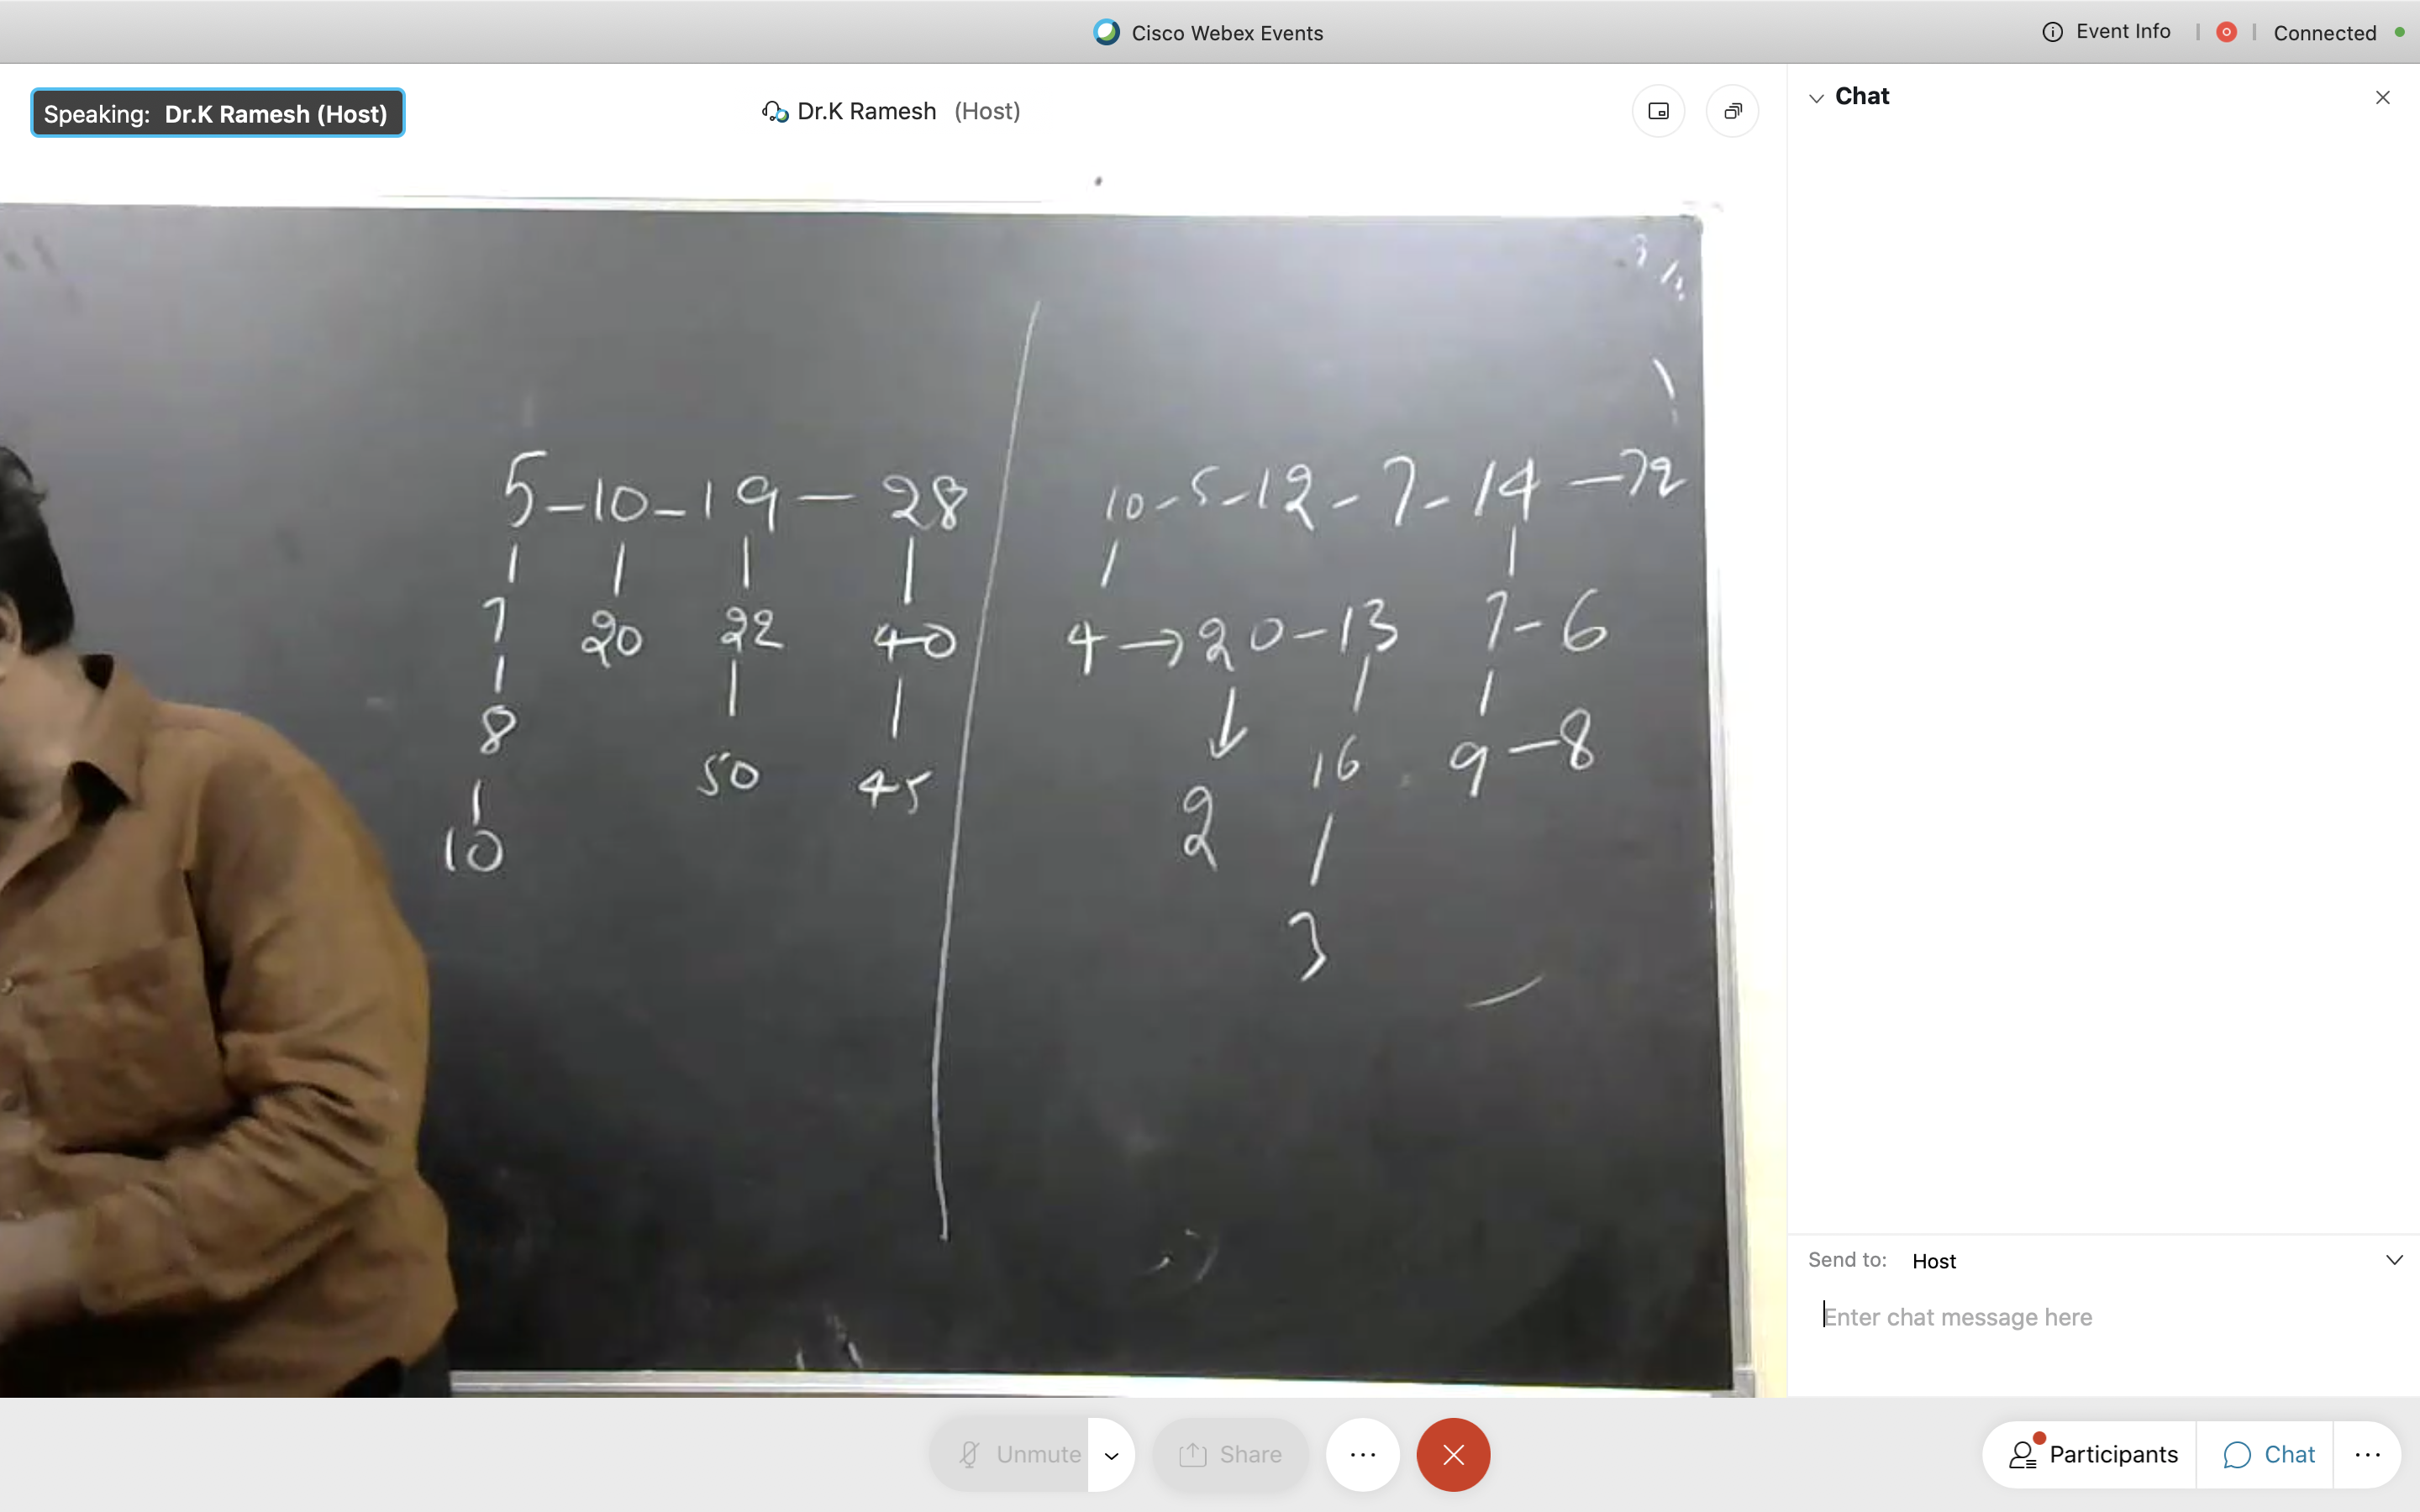 Cisco Webex Events
Event Info
Connected
Speaking: Dr.K Ramesh (Host)
Dr.K Ramesh (Host)
Chat
5 - 10 - 19 - 28
7 20 22 40
8
50 45
10
10 - 5 - 12 - 7 - 14 - 72
4 → 20 - 13 7 - 6
16 9 - 8
2
3
Send to: Host
Enter chat message here
Unmute
Share
Participants
Chat